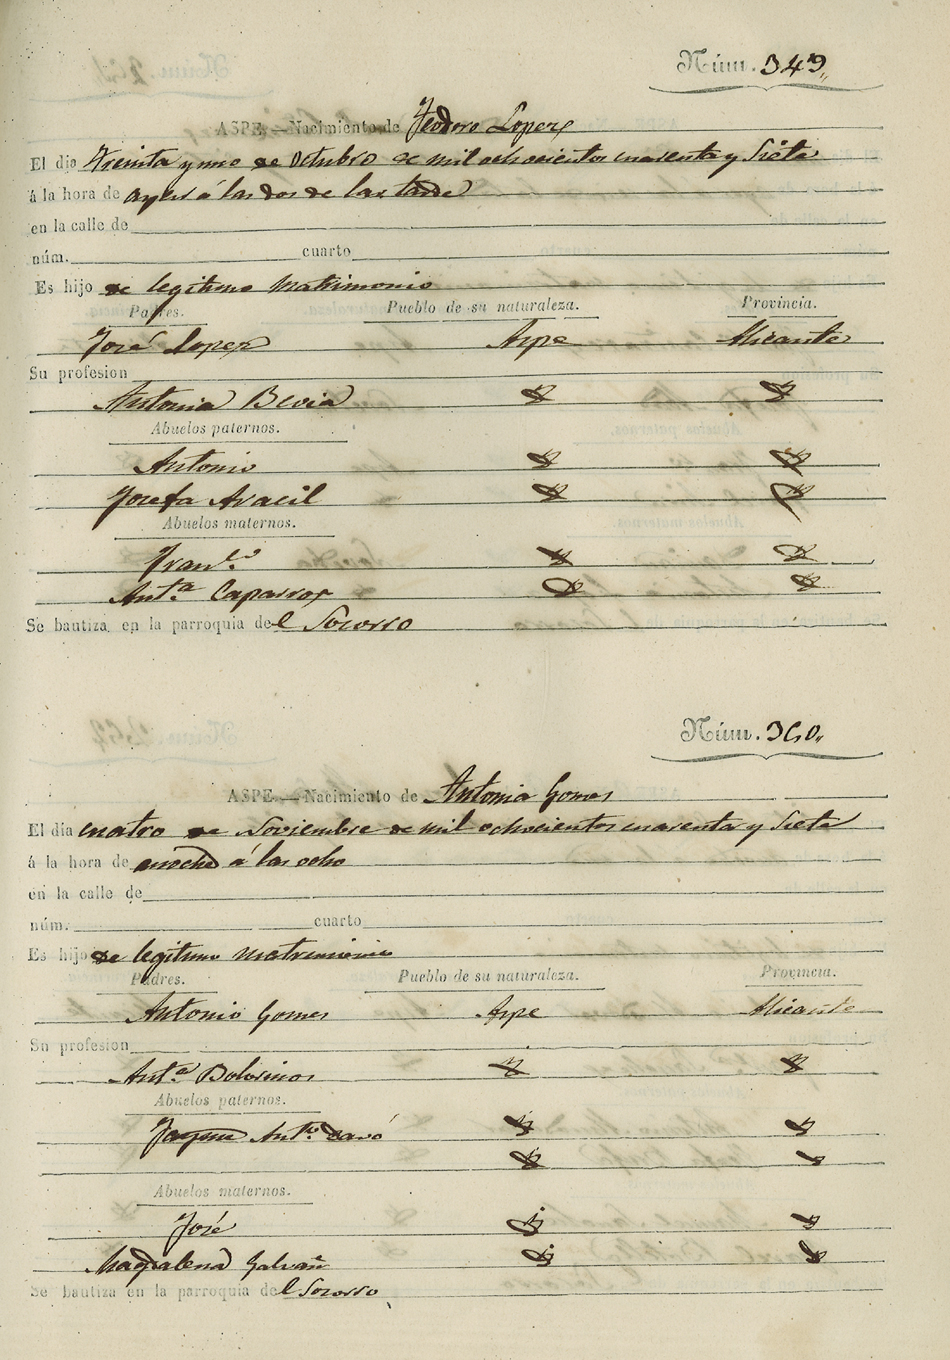 Núm. 349,,
ASPE.—Nacimiento de Teodoro Lopez
El dia treinta y uno de Octubro de mil ochocientos cuarenta y siete
á la hora de ayer á las dos de las tarde
en la calle de
núm. cuarto
Es hijo de legitimo Matrimonio
Padres. Pueblo de su naturaleza. Provincia.
José Lopez Aspe Alicante
Su profesion
Antonia Bevia
Abuelos paternos.
Antonio
Josefa Aracil
Abuelos maternos.
Fran.co
Ant.a Caparros
Se bautiza en la parroquia del Socorro
Núm. 360,,
ASPE.—Nacimiento de Antonia Gomes
El día cuatro de Noviembre de mil ochocientos cuarenta y siete
á la hora de anoche á las ocho
en la calle de
núm. cuarto
Es hijo de legitimo matrimonio
Padres. Pueblo de su naturaleza. Provincia.
Antonio Gomes Aspe Alicante
Su profesion
Ant.a Bolorinos
Abuelos paternos.
Ant.o
Abuelos maternos.
José
Magdalena Galvañ
Se bautiza en la parroquia del Socorro